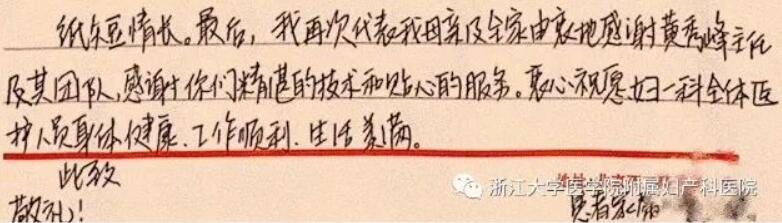 纸短情长。最后，我再次代表我母亲及全家由衷地感谢黄秀峰主任
及其团队，感谢你们精湛的技术和贴心的服务。衷心祝愿妇一科全体医
护人员身体健康、工作顺利、生活美满。
此致
敬礼！
患者家属
浙江大学医学院附属妇产科医院